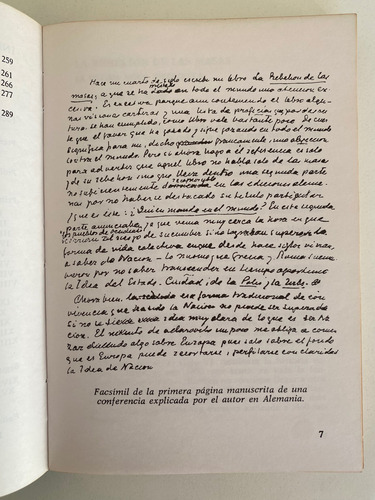 259
261
266
277
289
Hace un cuarto de siglo escribí un libro La Rebelión de las
masas, a que se ha dado en todo el mundo una atención ex-
cesiva. Es excesiva porque aun conteniendo el libro algu-
nas visiones certeras y una lista de profecías que por desven-
tura, se han cumplido, como libro vale bastante poco. De suer-
te que el favor que ha gozado y sigue gozando en todo el mundo
significa para mí, dicho francamente, una objeción
contra el mundo. Pero si ahora hago a él referencia es sólo
para advertir que aquel libro no habla sólo de las masas
y de su rebelión sino que lleva dentro una segunda parte
no suficientemente en las ediciones alema-
nas por no haber destacado su título particular
que es este: ¿Quién manda en el mundo? En esta segunda
parte anunciaba yo que venía muy cerca la hora en que
los pueblos de Occidente
el riesgo de sucumbir si no lograban superar la
forma de vida colectiva en que desde hace siglos vivían,
a saber: la Nación — lo mismo que Grecia y Roma sucum-
bieron por no saber trascender en tiempo oportuno
la idea del Estado. Ciudad, de la Polis y la Urbs.
Ahora bien, esa forma tradicional de con-
vivencia que ha sido la Nación no puede ser superada
si no se tiene una idea muy clara de lo que es ser Na-
ción. El intento de aclararlo un poco me obliga a comen-
zar diciendo algo sobre Europa pues sólo sobre el fondo
que es Europa puede recortarse y perfilarse con claridad
la Idea de Nación
Facsímil de la primera página manuscrita de una
conferencia explicada por el autor en Alemania.
7